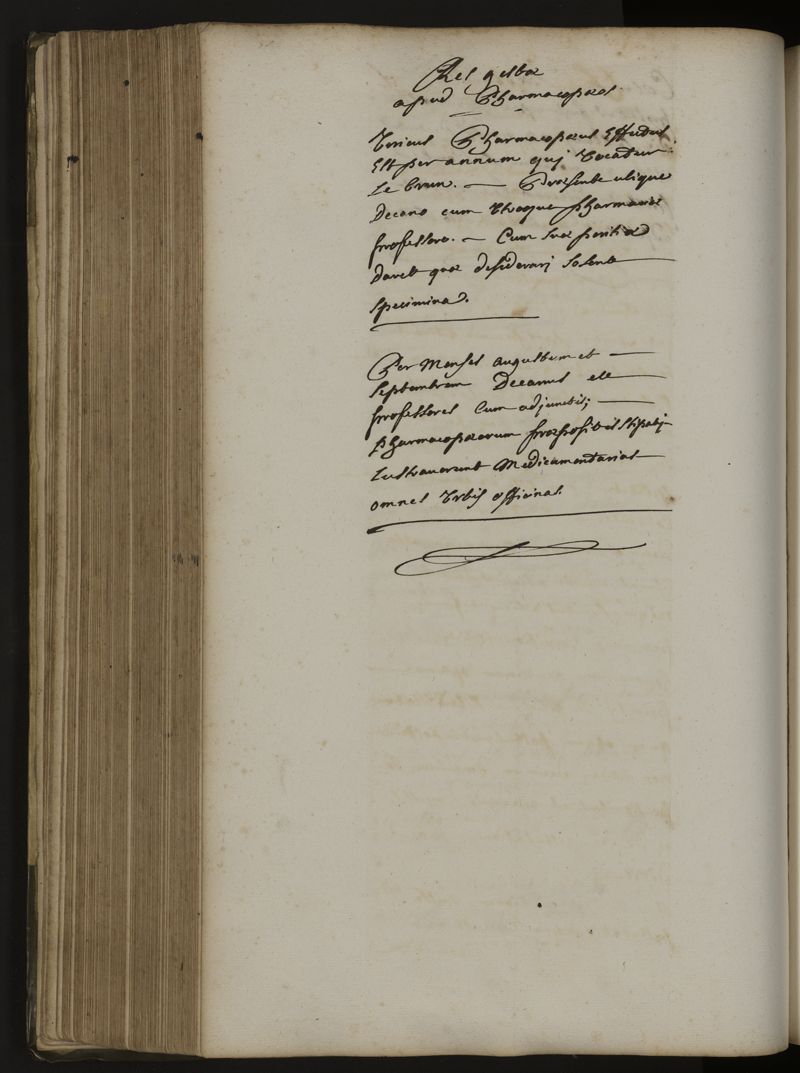 Res gestæ
apud Pharmacopæos.
Vnicus Pharmacopæus Effectus
Est per annum quj vocatur
Le brun. — Præsente ubique
Decano cum utroque pharmaciæ
professore. — Cum suæ peritiæ
daret quæ desiderarj solent
specimina.
Per Menses augustum et —
septembrem Decanus et
professores Cum adjunctis;
pharmacopæorum præpositis stipatj
Lustraverunt Medicamentarias
omnes Vrbis officinas.